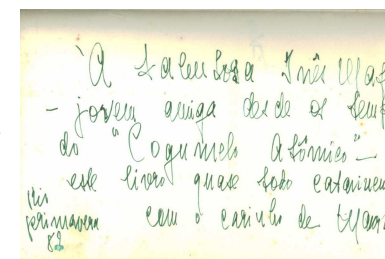 À talentosa Inês Maf
- jovem amiga desde os tem
do "Cogumelo Atômico" -
este livro quase todo catarinen
com o carinho de
Rio
primavera
82